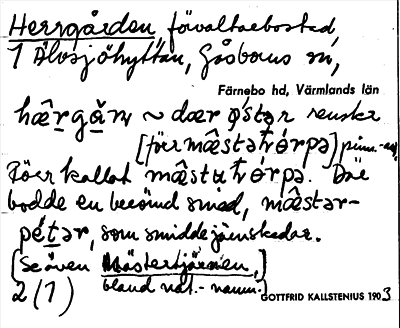 Herrgården, förvaltarebostad,
1 Älvsjöhyttan, Gåsborns sn,
Färnebo hd, Värmlands län
hæ̂rgạ̊ṇ ~ dær
[för mæ̂stətɷ́rpə]
Förr kallat mæ̂statɷ́rpə. Där
bodde en berömd smed, mæ̂stər-
pétər, som smidde järnskedar.
[Se även Mästertjärnen,]
2/1) bland nat.-namn.
GOTTFRID KALLSTENIUS 1903